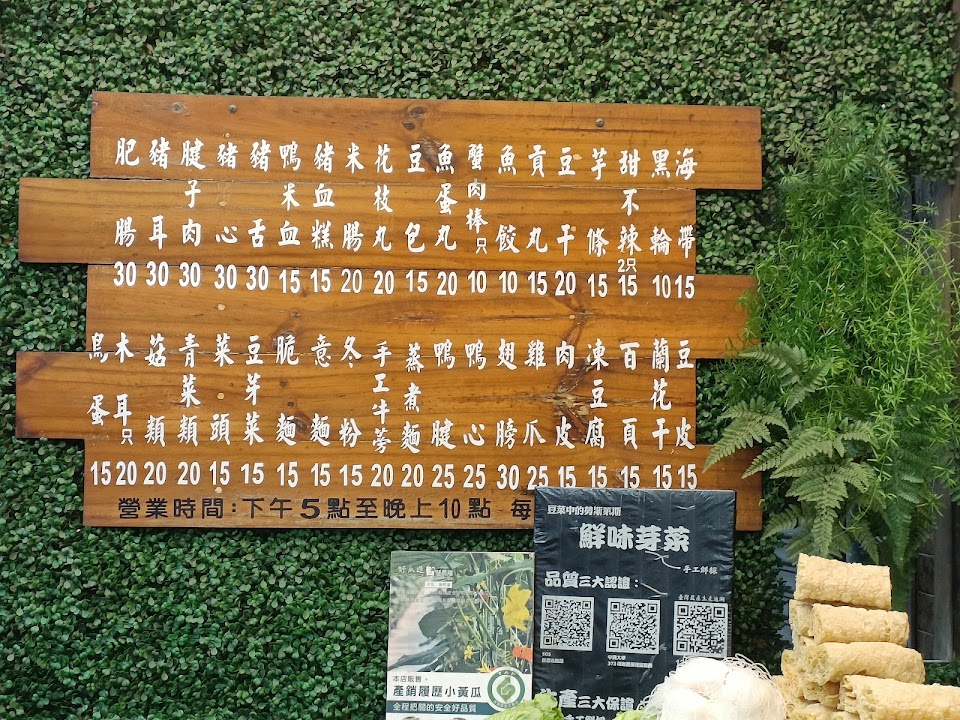 海帶 15
黑輪 10
甜不辣 2只 15
芋條 15
豆干 20
貢丸 15
魚餃 10
蟹肉棒只 10
魚蛋丸 20
豆包 15
花枝丸 20
米腸 20
豬血糕 15
鴨米血 15
豬舌 30
豬心 30
腱子肉 30
豬耳 30
肥腸 30
豆皮 15
蘭花干 15
百頁 15
凍豆腐 15
肉皮 15
雞爪 25
翅膀 30
鴨心 25
鴨腱 25
蒸煮麵 20
手工牛蒡 20
冬粉 15
意麵 15
脆麵 15
豆芽菜 15
菜頭 15
青菜類 20
菇類 20
木耳只 20
鳥蛋 15
營業時間：下午5點至晚上10點 每
鮮味芽菜
手工鮮採
品質三大認證：
生產三大保證
本店販售，
產銷履歷小黃瓜
全程把關的安全好品質